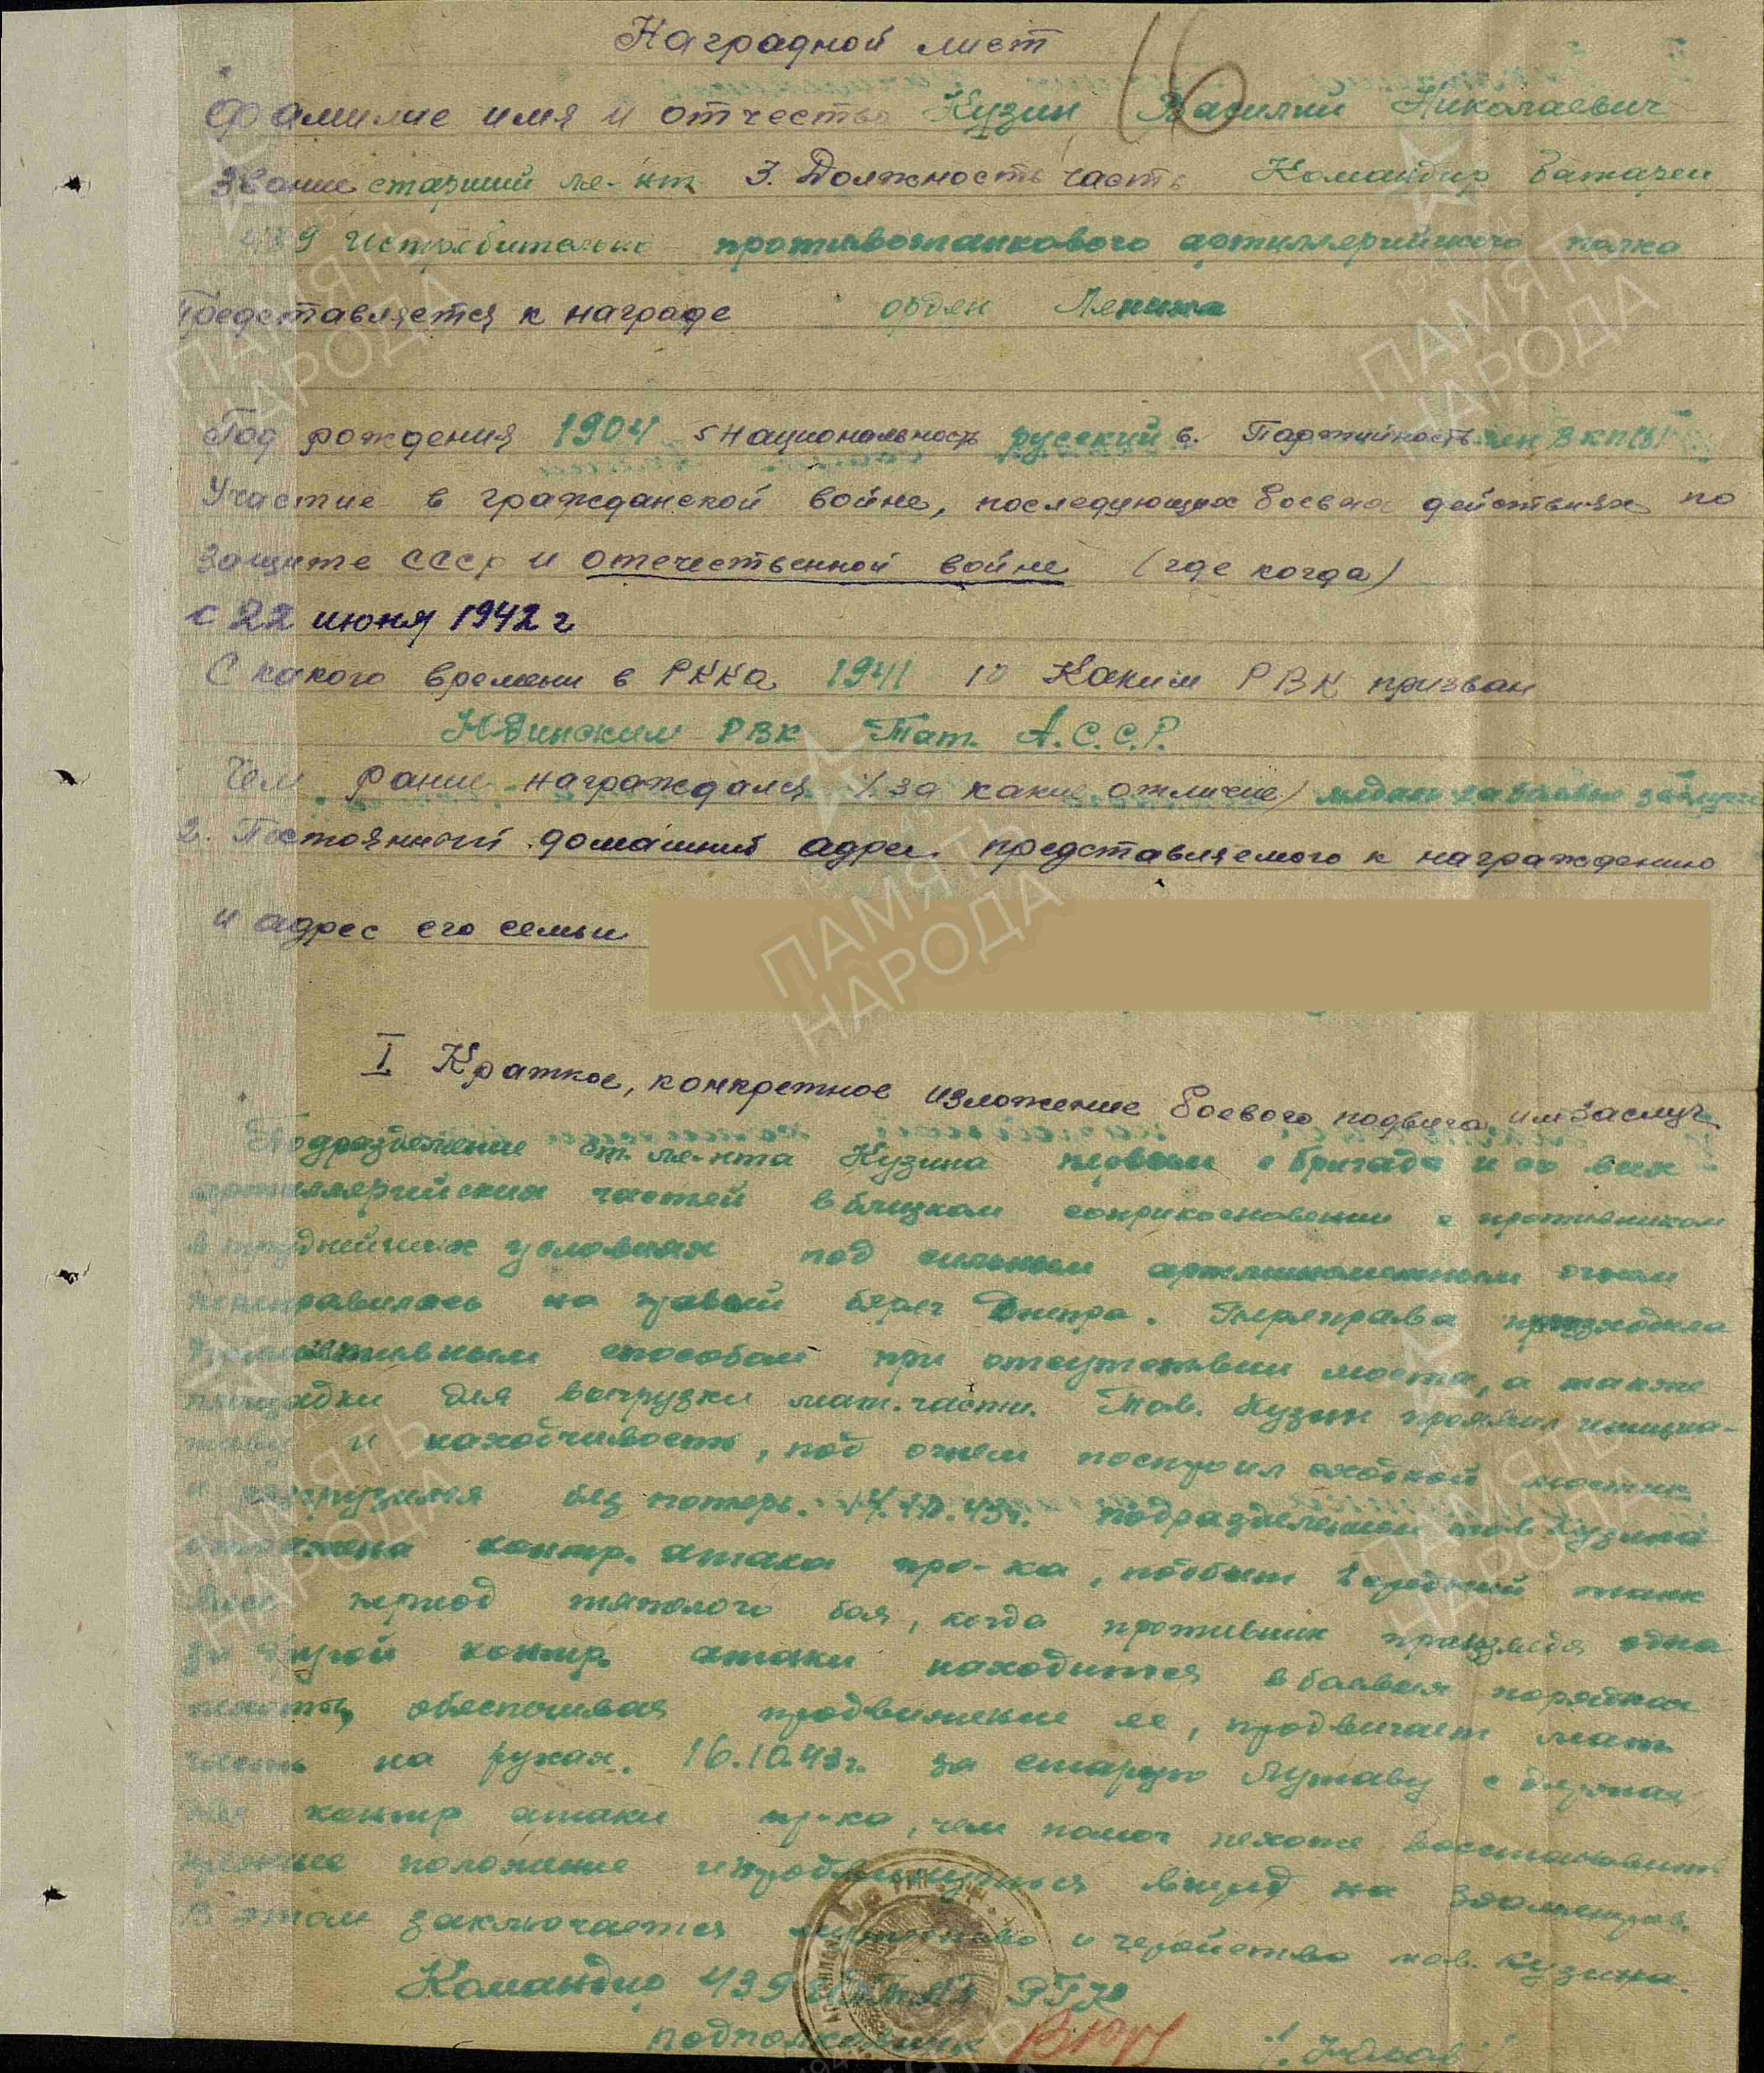 Наградной лист
16
Фамилие имя и отчество Кузин Василий Николаевич
Звание старший ле-нт 3. Должность часть Командир Батареи
439 Истребительно противотанкового артиллерийского полка
Представляется к награде орден Ленина
Год рождения 1904 5 Национальность русский 6. Партийность член ВКП(б)
Участие в гражданской войне, последующих боевых действиях по
защите СССР и отечественной войне (где когда)
с 22 июня 1942 г
С какого времени в РККА 1941 10 Каким РВК призван
Юдинским РВК Тат. А.С.С.Р.
Чем ранее награждался (за какие отличие) медаль за боевые заслуги
2. Постоянный домашний адрес представляемого к награждению
и адрес его семьи
I. Краткое, конкретное изложение боевого подвига или заслуг
Подразделение ст. ле-нта Кузина первым в бригаде и со всех
артиллерийских частей в близком соприкосновении с противником
в труднейших условиях под сильным артминометным огнем
переправилось на правый берег Днепра. Переправа производила
примитивным способом при отсутствии моста, а также
площадки для выгрузки мат. части. Тов. Кузин проявил инициа-
тиву и находчивость, под огнем построил мостик
и выгрузился без потерь. 14.10.43г. подразделением тов Кузина
отражена контр. атака про-ка, подбит 1 средний танк
Весь период тяжолого боя, когда противник производя одна
за другой контр. атаки находится в боевых порядках
пехоты, обеспечивая продвижение ее, продвигает мат.
часть на руках. 16.10.43г. за старую Лутаву
контр атаки пр-ка, чем помог пехоте восстановить
прежние положение и продвинуться вперед на 300 метров.
В этом заключается мужество и геройство тов. Кузина.
Командир 439 ИПТАП РГК
подполковник